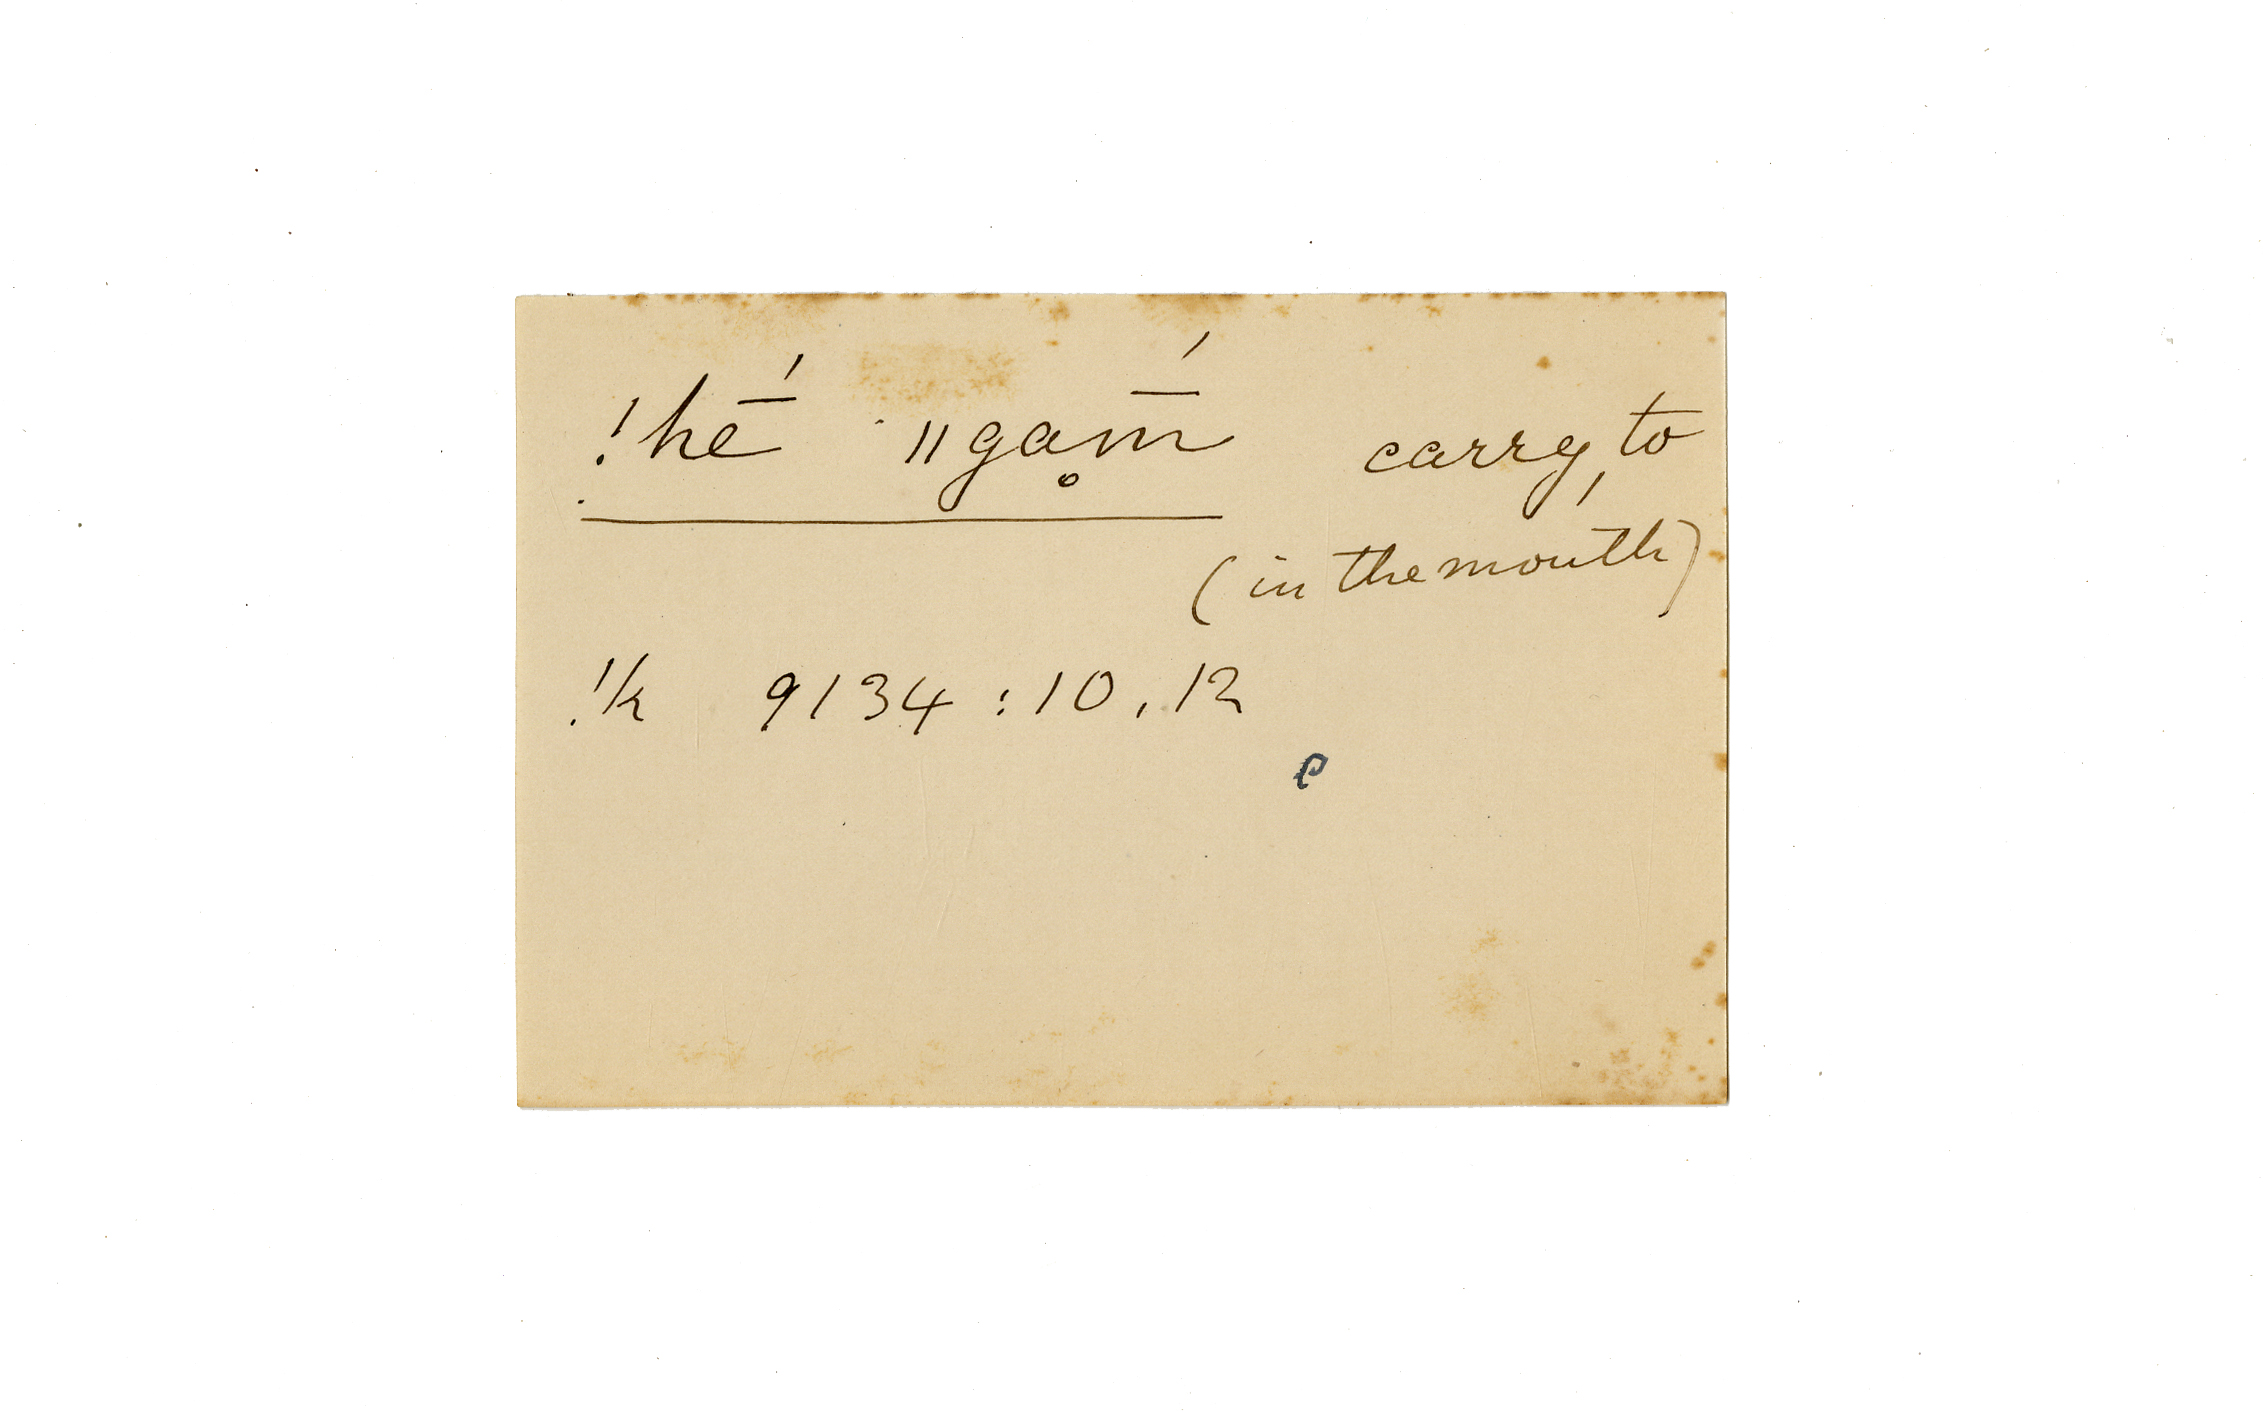 !hé̄ ǁgạm̄́ carry, to
(in the mouth)
!k 9134 : 10, 12
e